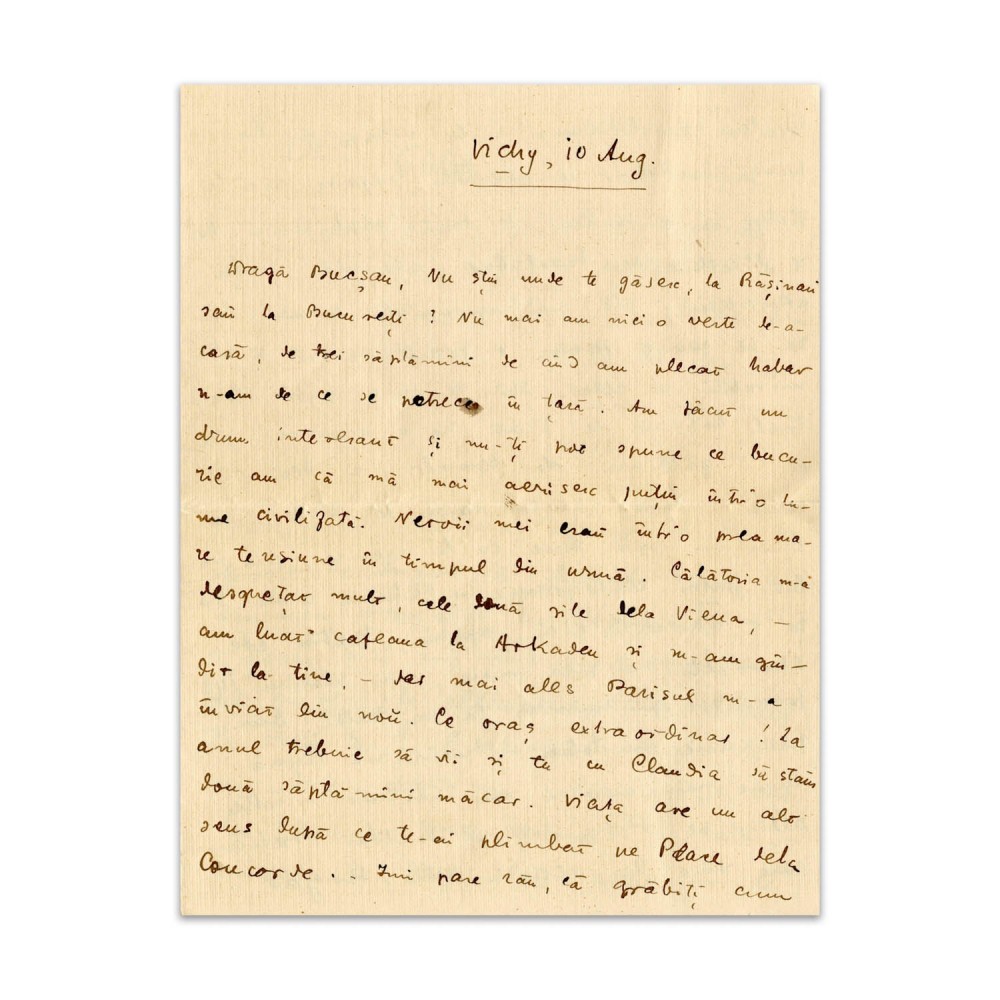 Vichy, 10 Aug.
Dragă Bucșan, Nu știu unde te găsesc, la Rășinari
sau la București ? Nu mai am nici o veste de-a-
casă, de trei săptămîni de cînd am plecat habar
n-am de ce se petrece în țară. Am făcut un
drum interesant și nu-ți pot spune ce bucu-
rie am că mă mai aerisesc puțin într'o lu-
me civilizată. Nervii mei erau într'o prea ma-
re tensiune în timpul din urmă. Călătoria m-a
deșteptat mult, cele două zile dela Viena, —
am luat cafeaua la Arkaden și m-am gîn-
dit la tine, — dar mai ales Parisul m-a
înviat din nou. Ce oraș extraordinar ! La
anul trebuie să vii și tu cu Claudia să stăm
două săptămîni măcar. Viața are un alt
sens după ce te-ai plimbat pe Place dela
Concorde .. Îmi pare rău, că grăbiți cum